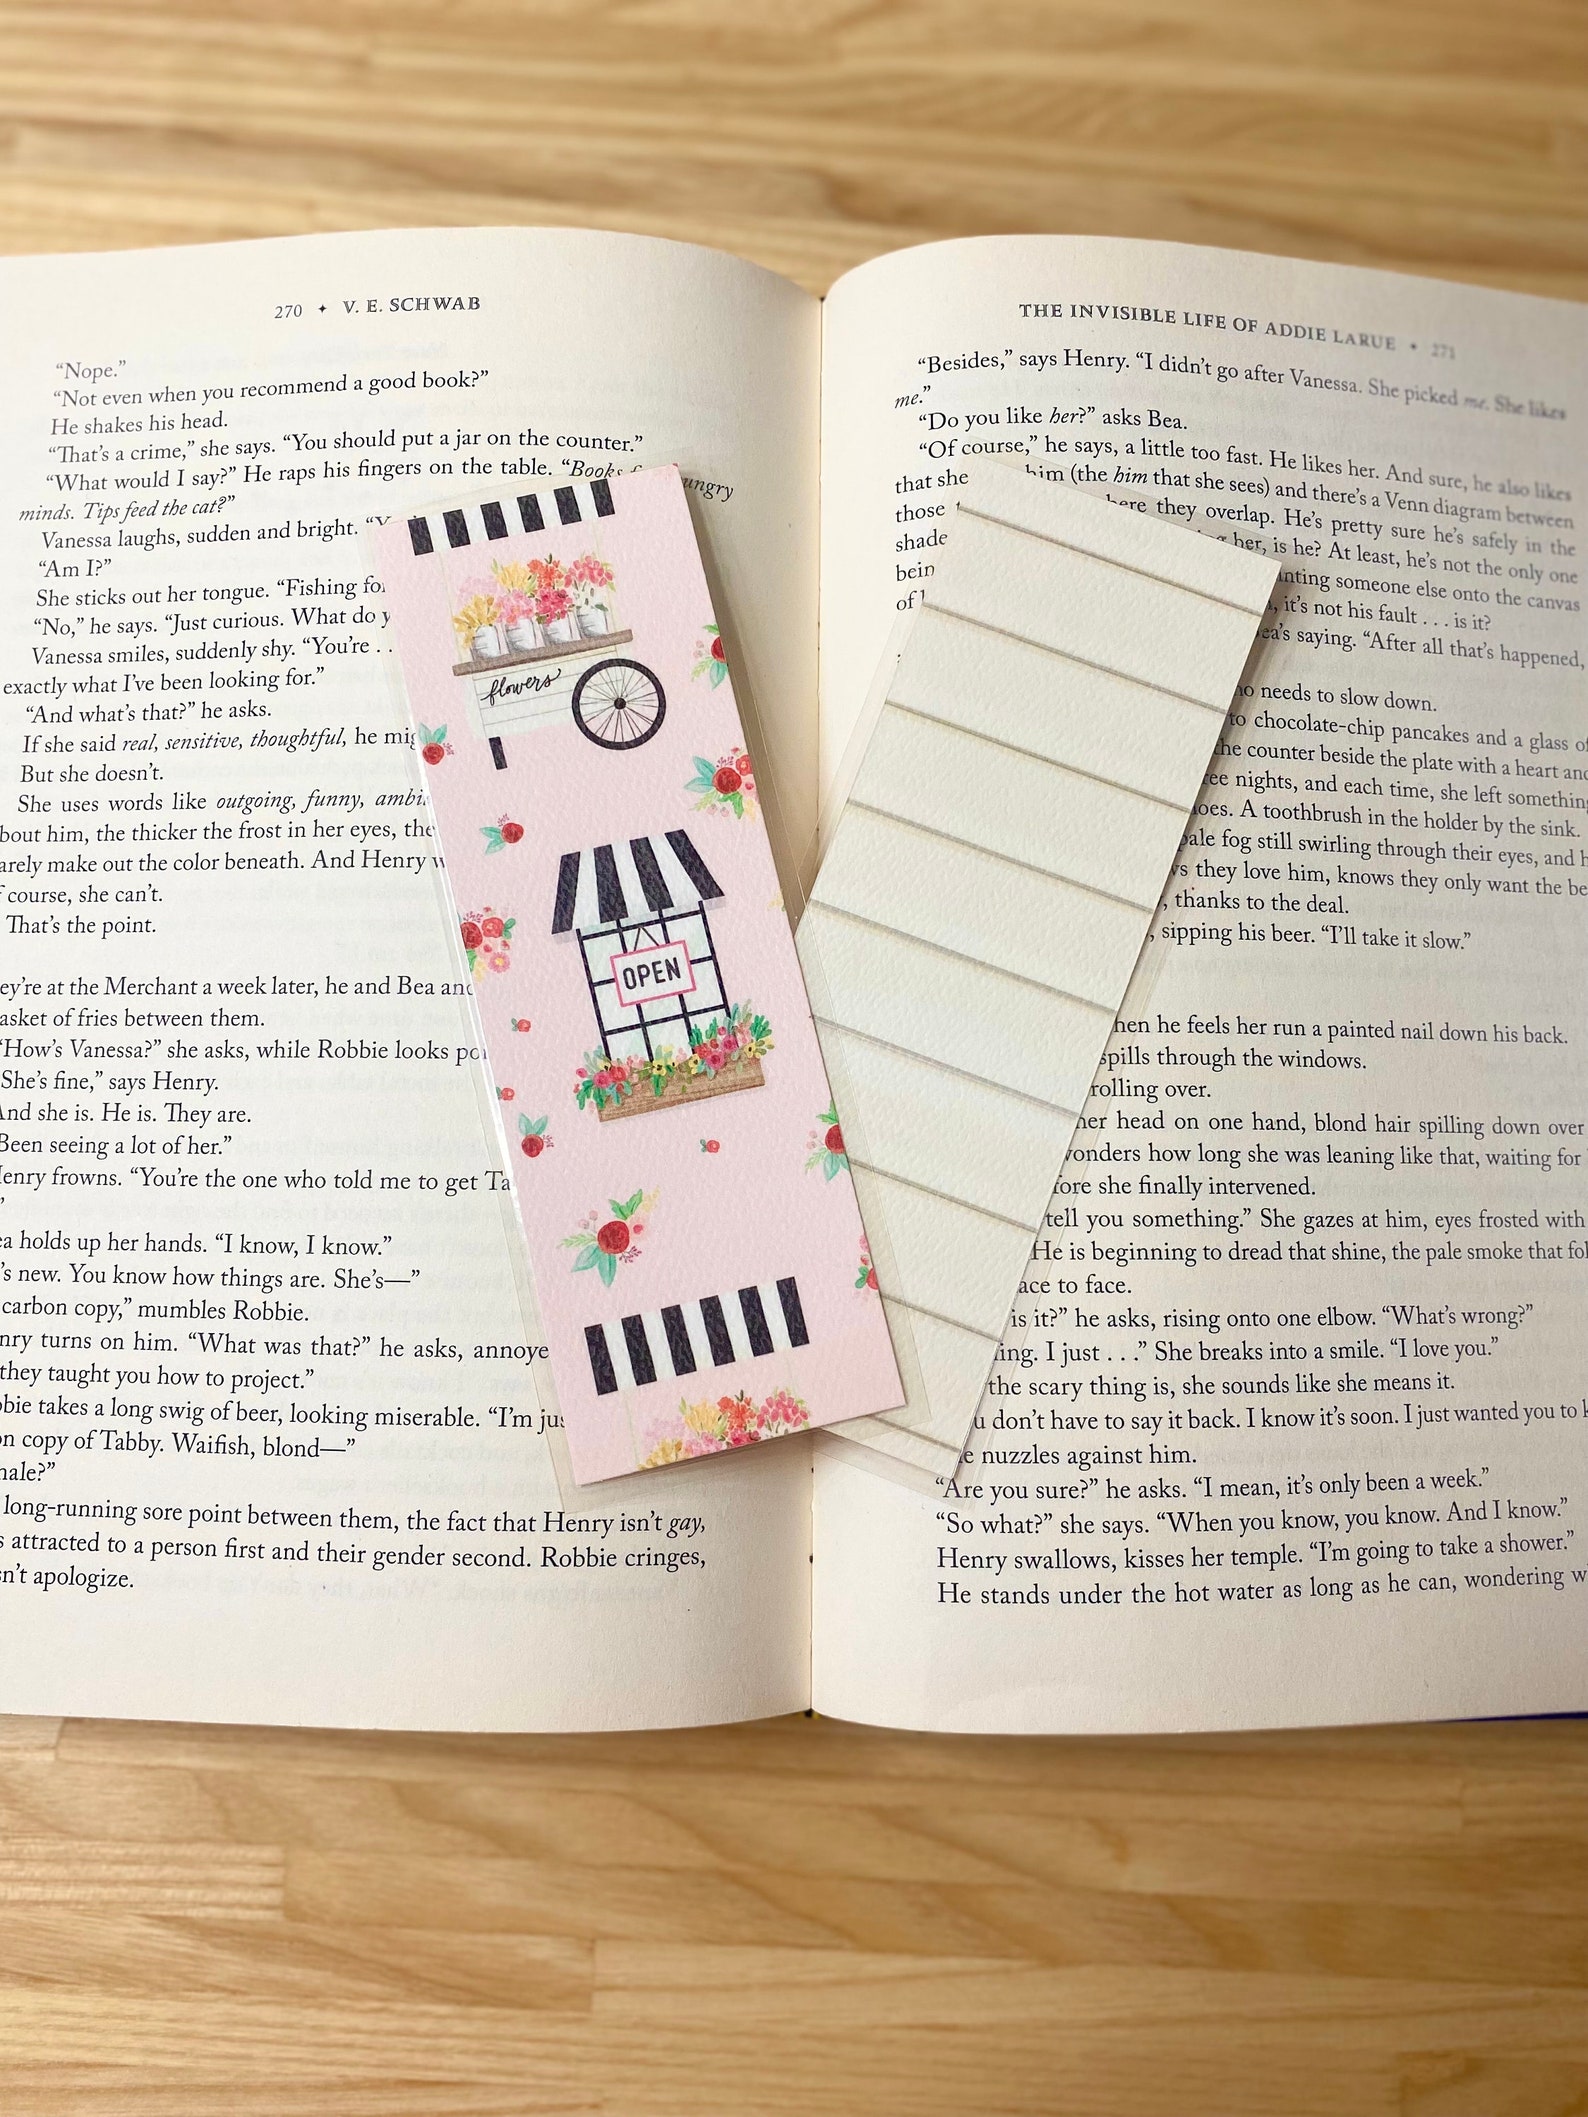 270 ✦ V. E. SCHWAB
“Nope.”
“Not even when you recommend a good book?”
He shakes his head.
“That’s a crime,” she says. “You should put a jar on the counter.”
“What would I say?” He raps his fingers on the table. “Books
minds. Tips feed the cat?”
Vanessa laughs, sudden and bright.
“Am I?”
She sticks out her tongue. “Fishing
“No,” he says. “Just curious. What do
Vanessa smiles, suddenly shy. “You’re . .
exactly what I’ve been looking for.”
“And what’s that?” he asks.
If she said real, sensitive, thoughtful, he
But she doesn’t.
She uses words like outgoing, funny,
bout him, the thicker the frost in her eyes, the
arely make out the color beneath. And Henry
f course, she can’t.
That’s the point.
ey’re at the Merchant a week later, he and Bea and
asket of fries between them.
“How’s Vanessa?” she asks, while Robbie looks
She’s fine,” says Henry.
And she is. He is. They are.
Been seeing a lot of her.”
Henry frowns. “You’re the one who told me to get
”
ea holds up her hands. “I know, I know.”
’s new. You know how things are. She’s—”
carbon copy,” mumbles Robbie.
nry turns on him. “What was that?” he asks, annoye
they taught you how to project.”
bbie takes a long swig of beer, looking miserable. “I’m
on copy of Tabby. Waifish, blond—”
male?”
long-running sore point between them, the fact that Henry isn’t gay,
s attracted to a person first and their gender second. Robbie cringes,
sn’t apologize.
flowers
OPEN
THE INVISIBLE LIFE OF ADDIE LARUE • 271
“Besides,” says Henry. “I didn’t go after Vanessa. She picked me. She likes
me.”
“Do you like her?” asks Bea.
“Of course,” he says, a little too fast. He likes her. And sure, he also likes
that she him (the him that she sees) and there’s a Venn diagram between
those ere they overlap. He’s pretty sure he’s safely in the
shade her, is he? At least, he’s not the only one
bein nting someone else onto the canvas
of it’s not his fault . . . is it?
ea’s saying. “After all that’s happened,
o needs to slow down.
to chocolate-chip pancakes and a glass of
the counter beside the plate with a heart and
ree nights, and each time, she left something
oes. A toothbrush in the holder by the sink.
pale fog still swirling through their eyes, and h
ws they love him, knows they only want the be
, thanks to the deal.
, sipping his beer. “I’ll take it slow.”
hen he feels her run a painted nail down his back.
spills through the windows.
rolling over.
her head on one hand, blond hair spilling down over
wonders how long she was leaning like that, waiting for
fore she finally intervened.
tell you something.” She gazes at him, eyes frosted with
He is beginning to dread that shine, the pale smoke that fol
ace to face.
is it?” he asks, rising onto one elbow. “What’s wrong?”
ing. I just . . .” She breaks into a smile. “I love you.”
the scary thing is, she sounds like she means it.
u don’t have to say it back. I know it’s soon. I just wanted you to k
e nuzzles against him.
“Are you sure?” he asks. “I mean, it’s only been a week.”
“So what?” she says. “When you know, you know. And I know.”
Henry swallows, kisses her temple. “I’m going to take a shower.”
He stands under the hot water as long as he can, wondering w